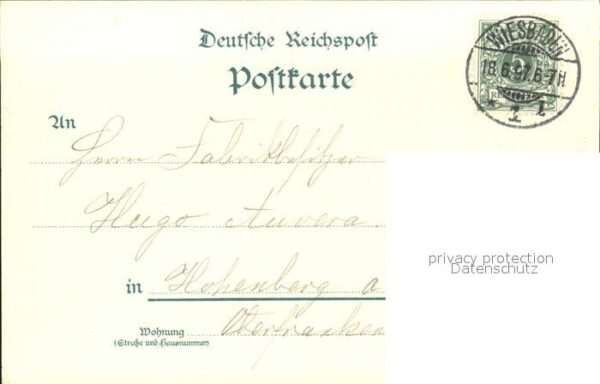 Deutsche Reichspost
Postkarte
WIESBADEN
18.6.97.6-7N
* 1 l
An
Herrn Fabrikbesitzer
Hugo Auvera.
privacy protection
Datenschutz
in Hohenberg a
Wohnung
(Straße und Hausnummer)
Oberfranken